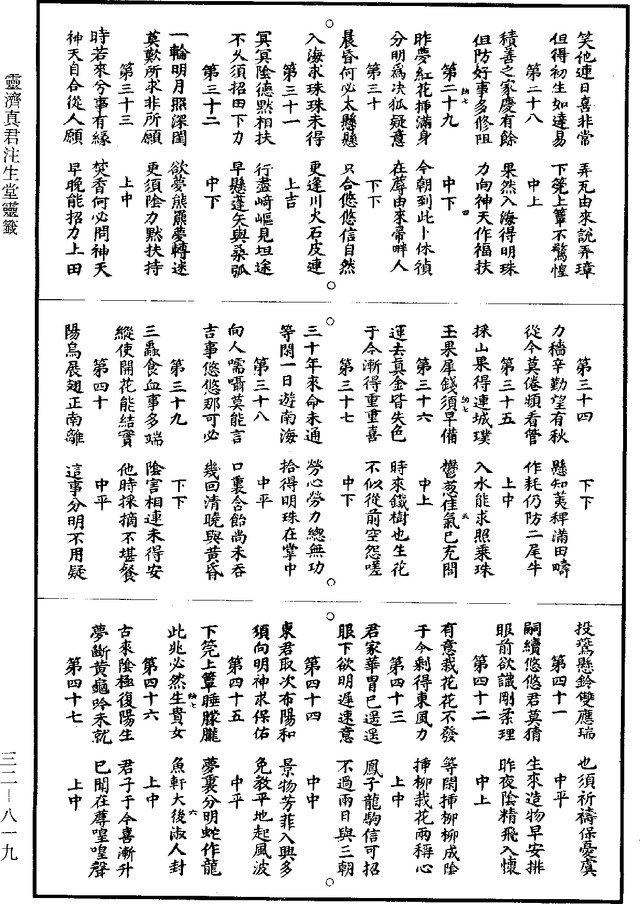 靈濟真君注生堂靈籤
笑他連日喜非常　弄瓦由來說弄璋
但得初生如達易　下筦上簟不驚惶
第二十八　中上
積善之家慶有餘　果然入海得明珠
但防好事多修阻　力向神天作福扶
第二十九　中下
昨夢紅花插滿身　今朝到此卜休禎
分明為決狐疑意　在蓐由來帚畔人
第三十　下下
晨昏何必太懸懸　只合悠悠信自然
入海求珠珠未得　更逢川火石皮連
第三十一　上吉
冥冥陰德默相扶　行盡崎嶇見坦途
不久須招田下力　早懸蓬矢與桑弧
第三十二　中下
一輪明月照深閨　欲夢熊羆夢轉迷
莫歎所求非所願　更須陰力默扶持
第三十三　上中
時若來兮事有緣　焚香何必問神天
神天自合從人願　早晚能招力上田
第三十四　下下
力穡辛勤望有秋　懸知荑稗滿田疇
從今莫倦頻看管　作耗仍防二尾牛
第三十五　上中
採山果得連城璞　入水能求照乘珠
玉果犀錢須早備　鬱葱佳氣已充閭
第三十六　中上
運去真金皆失色　時來鐵樹也生花
于今漸得重重喜　不似從前空怨嗟
第三十七　中下
三十年來命未通　勞心勞力總無功
等閑一日遊南海　拾得明珠在掌中
第三十八　中平
向人嚅囁莫能言　口裏含飴尚未吞
吉事悠悠那可必　幾回清曉與黃昏
第三十九　下下
三蟲食血事多端　陰害相連未得安
縱使開花能結實　他時採摘不堪餐
第四十　中平
陽烏展翅正南離　這事分明不用疑
投鷰懸鈴雙應瑞　也須祈禱保憂虞
第四十一　中平
嗣續悠悠君莫猜　生來造物早安排
眼前欲識剛柔理　昨夜陰精飛入懷
第四十二　中上
有意栽花花不發　等閑插柳柳成陰
于今剩得東風力　插柳栽花兩稱心
第四十三　上中
君家華胄已遥遥　鳳子龍駒信可招
服下欲明遲速意　不過兩日與三朝
第四十四　中中
東君取次布陽和　景物芳菲入興多
須向明神求保佑　免教平地起風波
第四十五　中平
下筦上簟睡朦朧　夢裏分明蛇作龍
此兆必然生貴女　魚軒大後淑人封
第四十六　上中
古來陰極復陽生　君子于今喜漸升
夢斷黃龜吟未就　已聞在蓐喤喤聲
第四十七　上中
三二—八一九